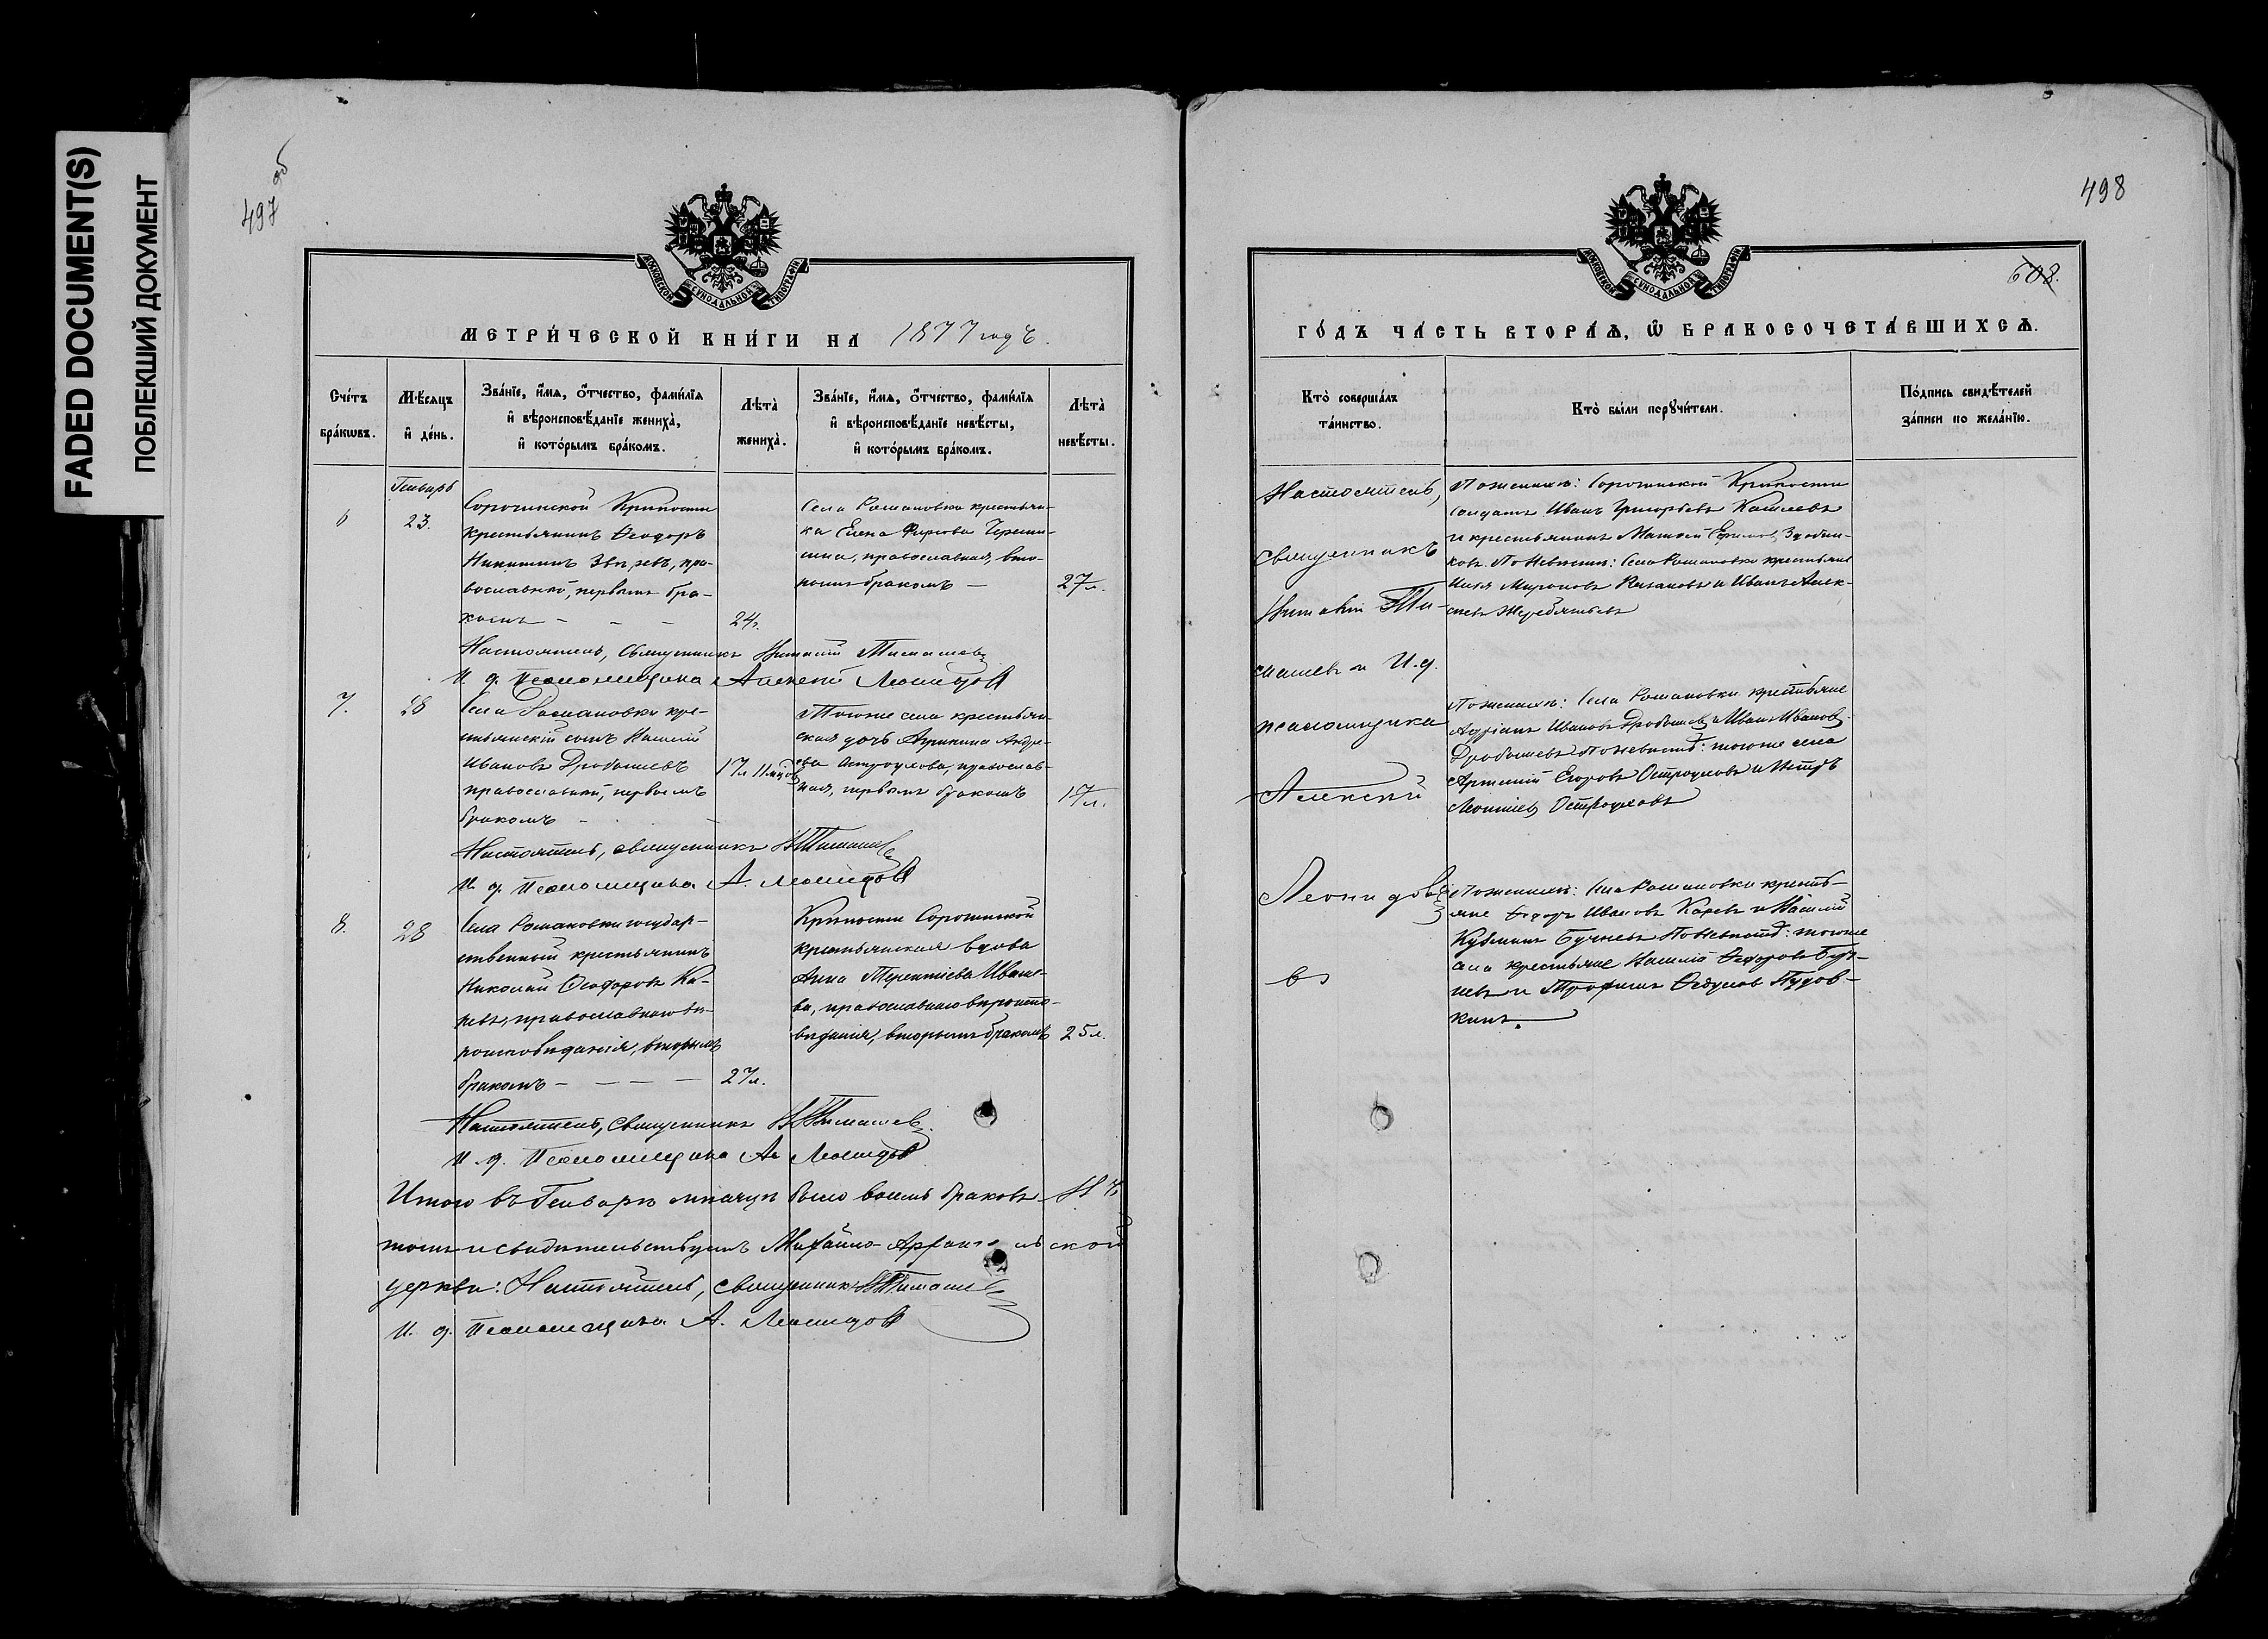 FADED DOCUMENT(S)
ПОБЛЕКШИЙ ДОКУМЕНТ
497 об
МОСКОВСКОЙ СУНОДАЛЬНОЙ ТИПОГРАФІИ
МЕТРИ́ЧЕСКОЙ КНИ́ГИ НА 1877 годъ.
Сче́тъ бра́кѡвъ.
Мѣ́сяцъ и҆ де́нь.
Зва́нїе, и҆́мѧ, ѻ҆́тчество, фами́лїѧ и҆ вѣроисповѣ́данїе жениха̀, и҆ кото́рымъ бра́комъ.
Лѣта̀ жениха̀.
Зва́нїе, и҆́мѧ, ѻ҆́тчество, фами́лїѧ и҆ вѣроисповѣ́данїе невѣ́сты, и҆ кото́рымъ бра́комъ.
Лѣта̀ невѣ́сты.
6
Генварь
23.
Сорочинской Крѣпости
крестьянинъ Ѳеодоръ
Никитинъ пра-
вославный, первымъ бра-
комъ - - -
24.
Села Романовки крестьян-
ка Елена Фирсова
православная, вто-
рымъ бракомъ —
27 л.
Настоятель, Священникъ Виталій Тимашев
И. д. Псаломщика Алексей Леонидов
7.
28
Села Романовки кре-
стьянскій сынъ Василій
Ивановъ Дробышевъ
православный, первымъ
бракомъ -
17 л 11 мцов
Тогоже села крестьян-
ская дочь Агрипина Андре-
ева Остроухова, православ-
ная, первымъ бракомъ
17 л.
Настоятель, священникъ В Тимашев
И. д. Псаломщика А. Леонидов
8.
28
Села Романовки государ-
ственный крестьянинъ
Николай Ѳеодоровъ Ка-
ревъ, православнаго вѣ-
роисповѣданія, вторымъ
бракомъ - — — —
27 л.
Крѣпости Сорочинской
крестьянская вдова
Анна Терентіева Ивано-
ва, православнаго вѣроиспо-
вѣданія, вторымъ бракомъ
25 л.
Настоятель, Священникъ В Тимашев.
И. д. Псаломщика Ал Леонидов
Итого въ Генварѣ мѣсяцѣ было восемь браковъ. Въ
томъ и свидѣтельствуемъ Михайло-Архангельской
церкви: Настоятель, священникъ В Тимашев
И. д. Псаломщика А. Леонидов
498
608.
МОСКОВСКОЙ СУНОДАЛЬНОЙ ТИПОГРАФІИ
ГО́ДЪ ЧА́СТЬ ВТОРА́Ѧ, Ѽ БРАКОСОЧЕТА́ВШИХСѦ.
Кто̀ соверша́лъ та́инство.
Кто̀ бы́ли порꙋчи́тели.
По́дпись свидѣ́телей за́писи по жела́нїю.
Настоятель,
священникъ
Виталій Ти-
машевъ и И. д.
псаломщика
Алексѣй
Леонидо
въ
По женихѣ: Сорочинской Крѣпости
солдатъ Иванъ Григорьевъ Кашаевъ
и крестьянинъ Матвей Ефимовъ Здобни-
ковъ. По Невѣстѣ: Села Романовки крестьяне
Илія Мироновъ Казаковъ и Иванъ Алек-
сѣевъ Жеребятьевъ
По женихѣ: Села Романовки крестьяне
Адріанъ Ивановъ Дробышевъ и Иванъ Ивановъ
Дробышевъ. По невѣстѣ: тогоже села
Артемій Егоровъ Остроуховъ и Петръ
Леонтіевъ Остроуховъ
По женихѣ: Села Романовки кресть-
яне Ѳедоръ Ивановъ Каревъ и Василій
Кузминъ Бучневъ По Невѣстѣ: тогоже
села крестьяне Василій Ѳедоровъ Буч-
невъ и Трофимъ Ѳедуловъ Пудов-
кинъ.